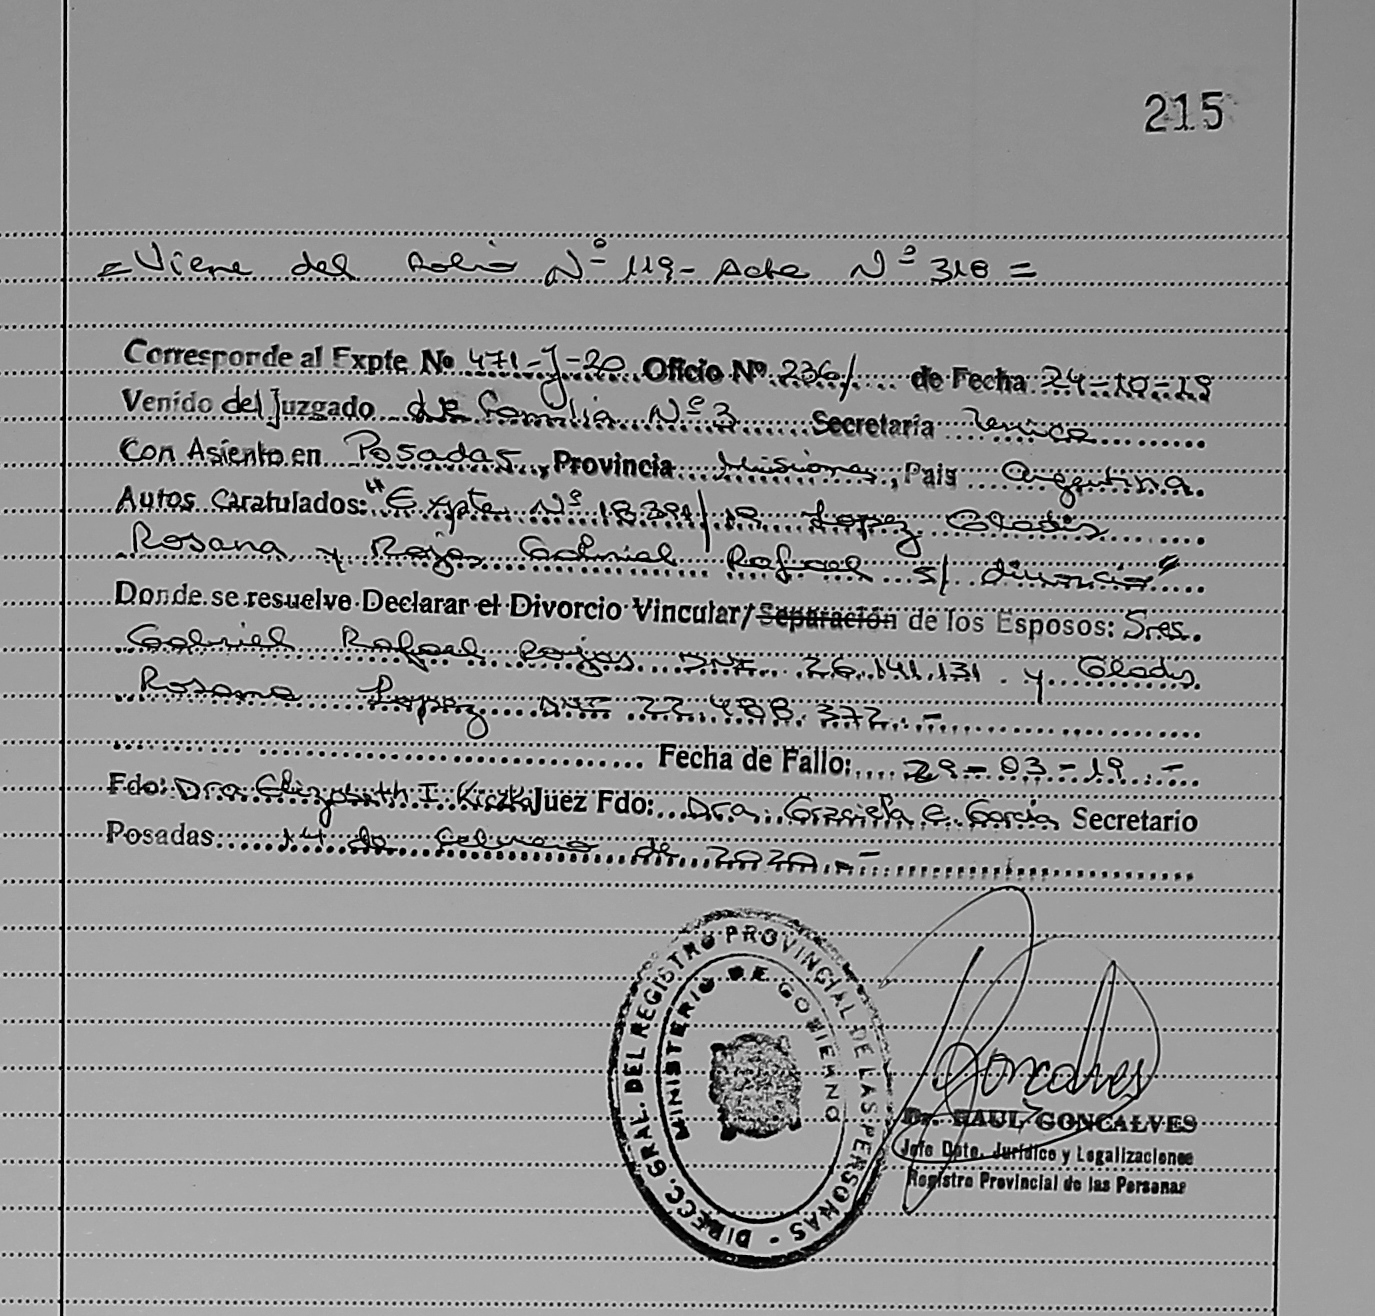 215
= Viene del folio Nº 119 - Acta Nº 318 =
Corresponde al Expte. Nº 471-J-20 Oficio Nº 236/ de Fecha 24-10-19
Venido del Juzgado de Familia Nº 3 Secretaría Unica
Con Asiento en Posadas, Provincia Misiones, Pais Argentina.
Autos Caratulados: "Expte Nº 18391/19 Lopez Gladis
Rosana y Rojas Gabriel Rafael s/ divorcio"
Donde se resuelve Declarar el Divorcio Vincular/Separación de los Esposos: Sres.
Gabriel Rafael Rojas DNI 26.141.131 y Gladis
Rosana Lopez DNI 22.488.372.-
Fecha de Fallo: 29-03-19.-
Fdo: Dra. Elizabeth I. Kiczka Juez Fdo: Dra. Graciela E. García Secretario
Posadas 14 de Febrero de 2020.-
DIRECC. GRAL. DEL REGISTRO PROVINCIAL DE LAS PERSONAS -
MINISTERIO DE GOBIERNO
Goncalves
Dr. RAUL GONCALVES
Jefe Dpto. Jurídico y Legalizaciones
Registro Provincial de las Personas